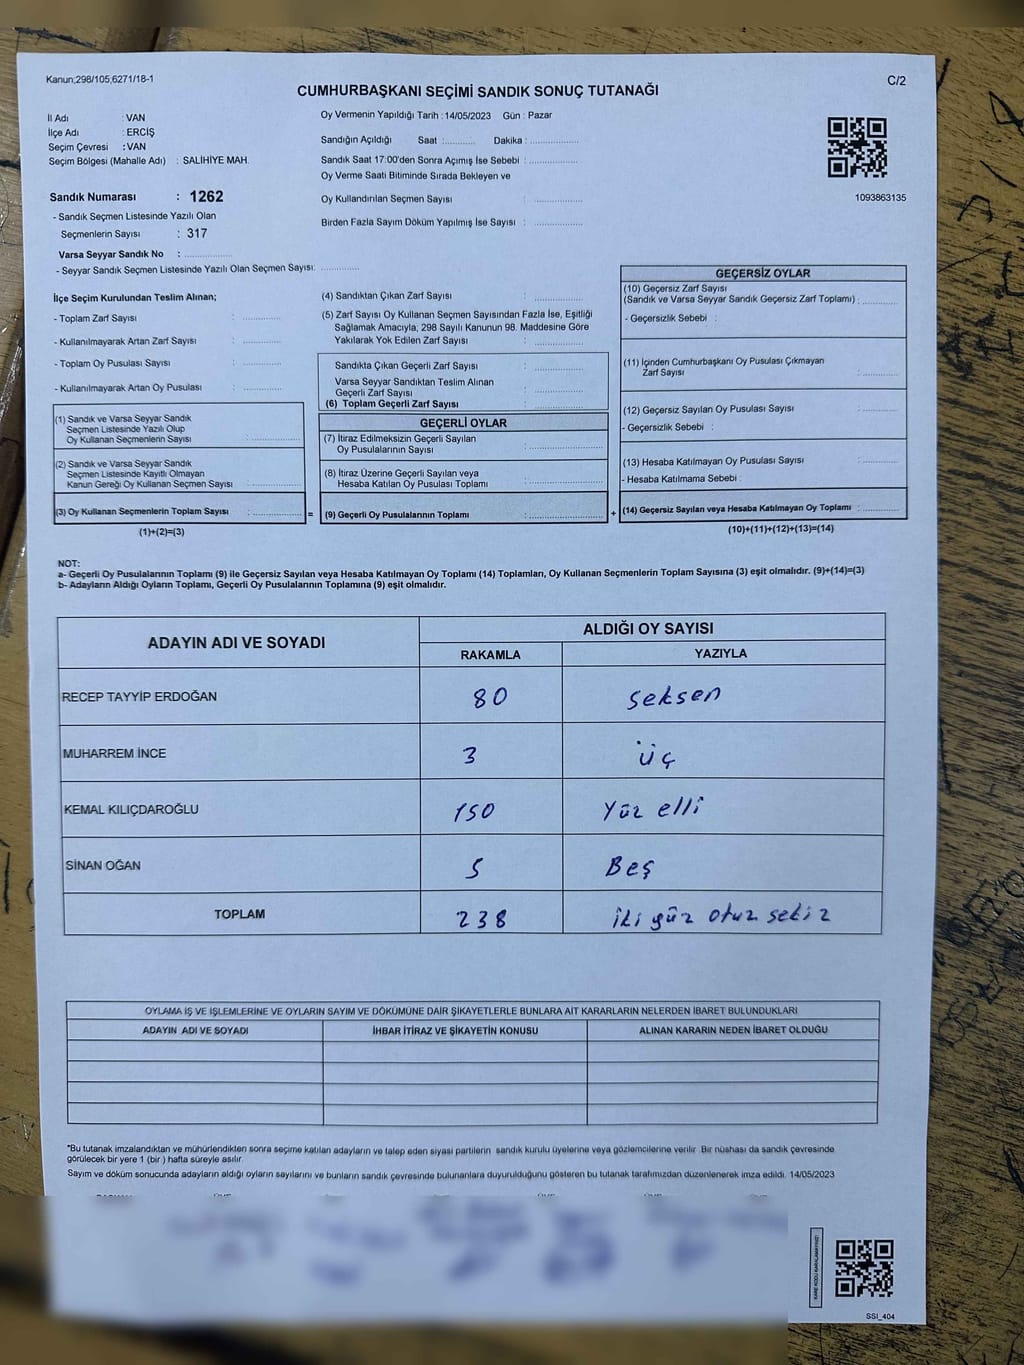 Kanun;298/105,6271/18-1
C/2
CUMHURBAŞKANI SEÇİMİ SANDIK SONUÇ TUTANAĞI
İl Adı : VAN
İlçe Adı : ERCİŞ
Seçim Çevresi : VAN
Seçim Bölgesi (Mahalle Adı) : SALİHİYE MAH.
Sandık Numarası : 1262
- Sandık Seçmen Listesinde Yazılı Olan
Seçmenlerin Sayısı : 317
Varsa Seyyar Sandık No : ............
- Seyyar Sandık Seçmen Listesinde Yazılı Olan Seçmen Sayısı: ............
Oy Vermenin Yapıldığı Tarih : 14/05/2023 Gün : Pazar
Sandığın Açıldığı Saat : ............ Dakika : ............
Sandık Saat 17:00'den Sonra Açımış İse Sebebi : ............
Oy Verme Saati Bitiminde Sırada Bekleyen ve
Oy Kullandırılan Seçmen Sayısı : ............
Birden Fazla Sayım Döküm Yapılmış İse Sayısı : ............
1093863135
İlçe Seçim Kurulundan Teslim Alınan;
- Toplam Zarf Sayısı : ............
- Kullanılmayarak Artan Zarf Sayısı : ............
- Toplam Oy Pusulası Sayısı : ............
- Kullanılmayarak Artan Oy Pusulası : ............
(1) Sandık ve Varsa Seyyar Sandık
Seçmen Listesinde Yazılı Olup
Oy Kullanan Seçmenlerin Sayısı : ............
(2) Sandık ve Varsa Seyyar Sandık
Seçmen Listesinde Kayıtlı Olmayan
Kanun Gereği Oy Kullanan Seçmen Sayısı : ............
(3) Oy Kullanan Seçmenlerin Toplam Sayısı : ............ =
(1)+(2)=(3)
(4) Sandıktan Çıkan Zarf Sayısı : ............
(5) Zarf Sayısı Oy Kullanan Seçmen Sayısından Fazla İse, Eşitliği
Sağlamak Amacıyla; 298 Sayılı Kanunun 98. Maddesine Göre
Yakılarak Yok Edilen Zarf Sayısı : ............
Sandıkta Çıkan Geçerli Zarf Sayısı : ............
Varsa Seyyar Sandıktan Teslim Alınan
Geçerli Zarf Sayısı : ............
(6) Toplam Geçerli Zarf Sayısı : ............
GEÇERLİ OYLAR
(7) İtiraz Edilmeksizin Geçerli Sayılan
Oy Pusulalarının Sayısı : ............
(8) İtiraz Üzerine Geçerli Sayılan veya
Hesaba Katılan Oy Pusulası Toplamı : ............
(9) Geçerli Oy Pusulalarının Toplamı : ............ +
GEÇERSİZ OYLAR
(10) Geçersiz Zarf Sayısı
(Sandık ve Varsa Seyyar Sandık Geçersiz Zarf Toplamı) : ............
- Geçersizlik Sebebi :
(11) İçinden Cumhurbaşkanı Oy Pusulası Çıkmayan
Zarf Sayısı : ............
(12) Geçersiz Sayılan Oy Pusulası Sayısı : ............
- Geçersizlik Sebebi :
(13) Hesaba Katılmayan Oy Pusulası Sayısı : ............
- Hesaba Katılmama Sebebi :
(14) Geçersiz Sayılan veya Hesaba Katılmayan Oy Toplamı : ............
(10)+(11)+(12)+(13)=(14)
NOT:
a- Geçerli Oy Pusulalarının Toplamı (9) ile Geçersiz Sayılan veya Hesaba Katılmayan Oy Toplamı (14) Toplamları, Oy Kullanan Seçmenlerin Toplam Sayısına (3) eşit olmalıdır. (9)+(14)=(3)
b- Adayların Aldığı Oyların Toplamı, Geçerli Oy Pusulalarının Toplamına (9) eşit olmalıdır.
ADAYIN ADI VE SOYADI ALDIĞI OY SAYISI
RAKAMLA YAZIYLA
RECEP TAYYİP ERDOĞAN 80 seksen
MUHARREM İNCE 3 üç
KEMAL KILIÇDAROĞLU 150 Yüz elli
SİNAN OĞAN 5 Beş
TOPLAM 238 iki yüz otuz sekiz
OYLAMA İŞ VE İŞLEMLERİNE VE OYLARIN SAYIM VE DÖKÜMÜNE DAİR ŞİKAYETLERLE BUNLARA AİT KARARLARIN NELERDEN İBARET BULUNDUKLARI
ADAYIN ADI VE SOYADI İHBAR İTİRAZ VE ŞİKAYETİN KONUSU ALINAN KARARIN NEDEN İBARET OLDUĞU
*Bu tutanak imzalandıktan ve mühürlendikten sonra seçime katılan adayların ve talep eden siyasi partilerin sandık kurulu üyelerine veya gözlemcilerine verilir. Bir nüshası da sandık çevresinde
görülecek bir yere 1 (bir) hafta süreyle asılır.
Sayım ve döküm sonucunda adayların aldığı oyların sayılarını ve bunların sandık çevresinde bulunanlara duyurulduğunu gösteren bu tutanak tarafımızdan düzenlenerek imza edildi. 14/05/2023
KARE KODU KARALAMAYINIZ!
SSI_404